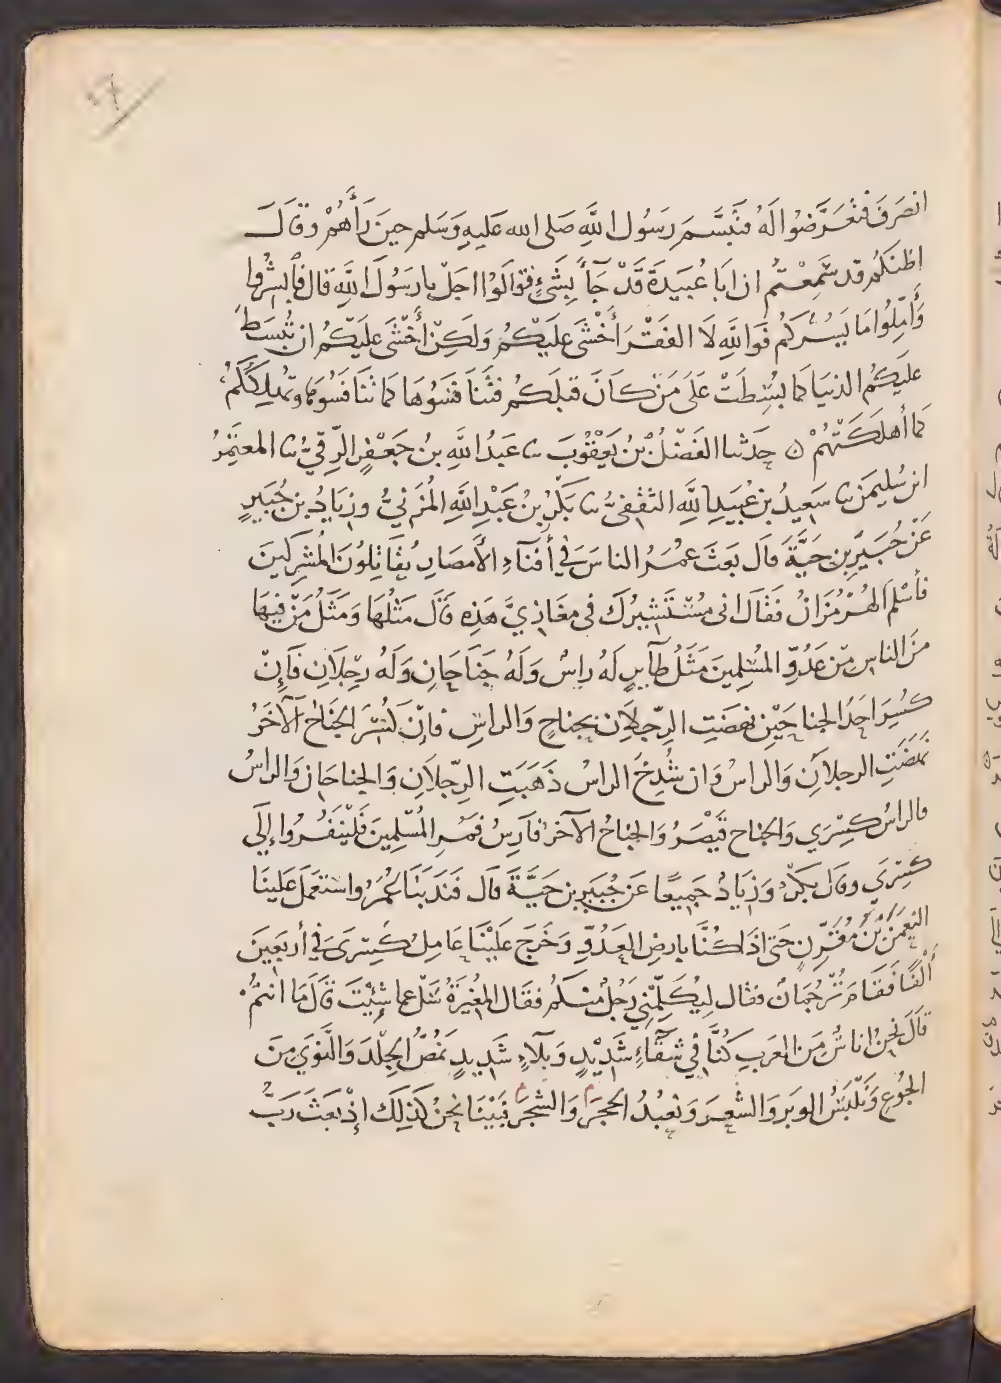 انصَرَفَ فتَعَرَّضُوا لَهُ فتَبَسَّمَ رَسُول اللَّهِ صَلى الله عَليهِ وَسَلم حينَ رَأَهُمْ وقَالَ
اظنكُم قد سَمِعْتُم ان ابَا عُبَيدَةَ قَدْ جَآ بِشَىْءٍ فَوَالَوْا اجَلْ يا رَسُولَ اللَّهِ قال فأبشرُوا
وَأَمِّلُوا مَا يَسُرُّكُم فَوَاللَّهِ لَا الفَقْرَ أَخْشَى عَلَيْكُمْ وَلَكِنْ أَخْشَى عَليْكُم ان تُبْسَطَ
عَليكُم الدنيَا كما بُسِطَتْ عَلَى مَنْ كانَ قبلكُم فتَنَافَسُوهَا كما تَنَافَسُوهَا وتُهْلِكَكُمْ
كما أهلَكَتْهُمْ ۝ حَدثنا الفَضْلُ بْنُ يَعْقُوبَ نا عَبدُ اللَّهِ بنُ جَعْفَرٍ الرَّقيُّ نا المعتَمِرُ
ابن سُليمَن نا سَعِيدُ بن عُبَيدِ اللَّهِ الثقفِىُّ نا بَكْرُ بْنُ عَبْدِ اللَّهِ المُزَنيُّ وزيَادُ بن جُبَيرٍ
عَنْ جُبَيرِ بنِ حَيَّةَ قَال بَعَثَ عُمَرُ الناسَ فِي أَفْنَآءِ الأَمصَارِ يقَاتِلُونَ المُشرِكينَ
فأسْلمَ الهُرْمُزَانُ فَقَال انى مسْتَشيرُكَ فى مغَازِيَّ هَذِهِ قَالَ مَثَلُهَا وَمَثَلُ مَنْ فِيهَا
منَ الناسِ مِنْ عَدُوِّ المُسْلِمينَ مَثَلُ طآيرٍ لَهُ رَاسٌ وَلَهُ جَنَاحَانِ وَلَهُ رِجْلَانِ فَإِنْ
كُسِرَ احَدُ الجناحَيْنِ نهَضَتِ الرِّجْلَانِ بجناحٍ وَالراسِ فَإِنْ كُسِرَ الجَنَاحُ الآخَرُ
نَهَضَتِ الرجلانِ وَالراسُ وَان شُدِخَ الراسُ ذَهَبَتِ الرِّجْلَانِ وَالجناحَان وَالراسُ
فالراسُ كِسْرَي وَالجناح قيْصَرُ وَالجناحُ الآخرُ فارِسُ فمُرِ المُسْلِمينَ فَلْيَنْفِرُوا إلَي
كِسْرَي وقال بَكْرٌ وَزِيَادُ جَمِيعًا عَن جُبَيرِ بن حَيَّةَ قال فَنَدَبَنَا عُمَرُ واسْتعمَلَ عَلينَا
النعمَنَ بْنَ مُقَرِّنٍ حَتى اذَا كُنَّا بارضِ العَدُوِّ وَخَرَجَ عَلَيْنَا عَامِلُ كِسْرَى فى أربَعِينَ
أَلْفًا فَقَامَ تُرْجُمَانُ فقال لِيُكَلِّمْنِي رَجُلٌ منكُم فقَال المُغِيرَةُ سَلْ عما شِئتَ قَالَ مَا انتُمْ
قالَ نحنُ اناسٌ مِنَ العَرَبِ كُنَّا في شقَآءٍ شَدِيْدٍ وَبَلَآءٍ شَدِيدٍ نَمَصُّ الجِلْدَ وَالنَّوَي مِنَ
الجُوعِ وَنَلْبَسُ الوبَر وَالشعَرَ وَنعبُدُ الحجَرَ وَالشجَرَ فَبَيْنَا نحنُ كَذلِكَ إذْ بَعَثَ رَبُّ